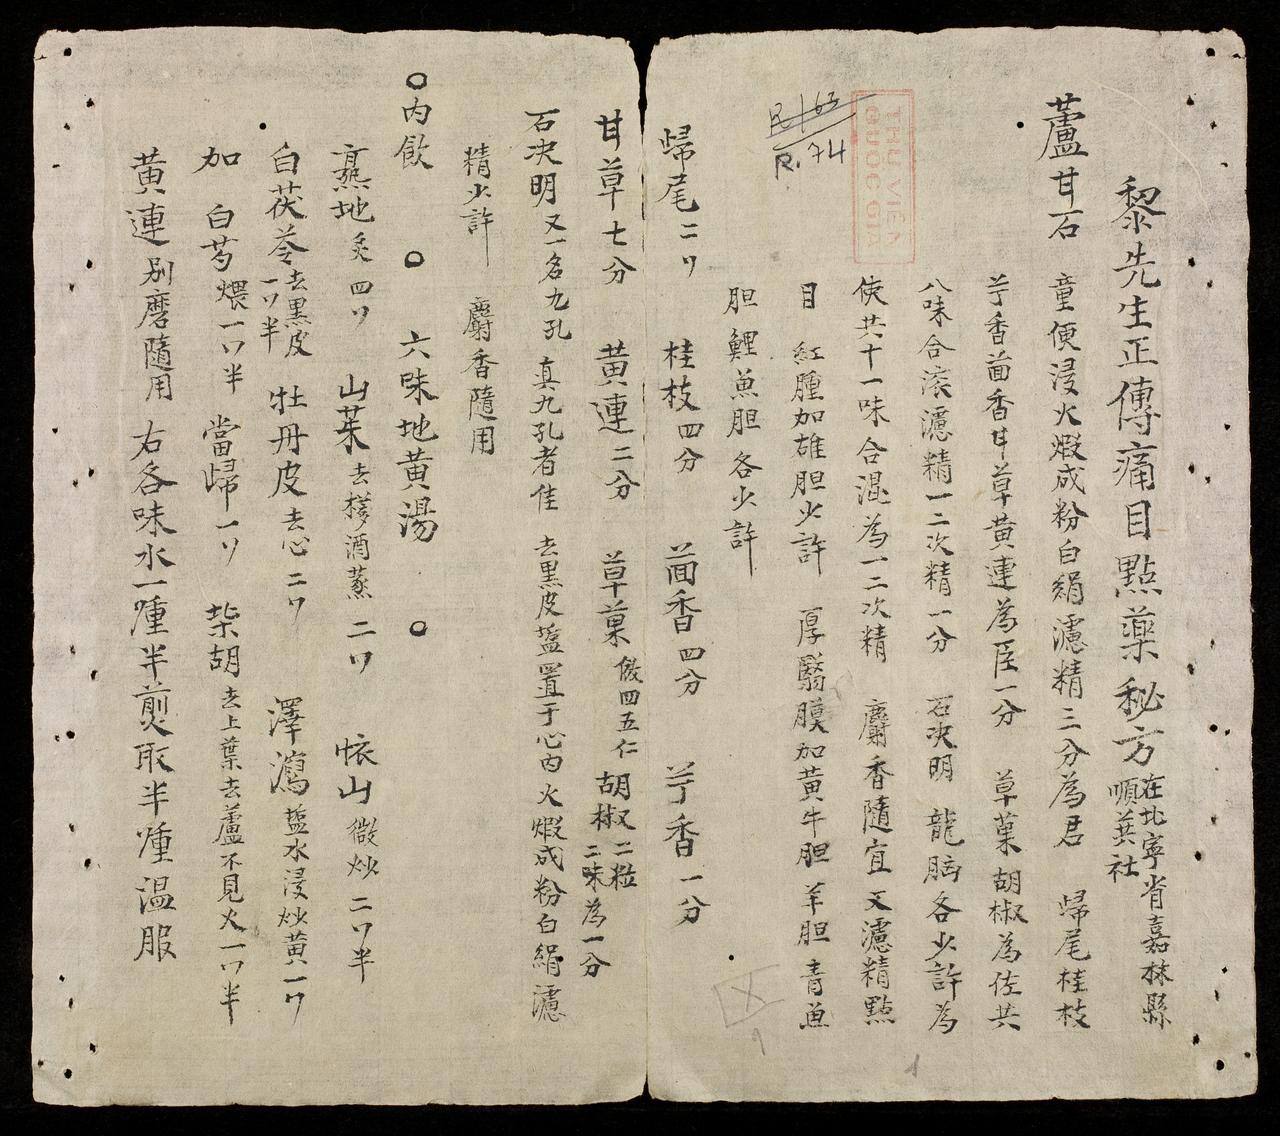 黎先生正傳痛目點藥秘方 在北寧省嘉林縣順英社
蘆甘石 童便浸火煆成粉白絹濾精三分為君 歸尾桂枝
苧香茴香甘草黃連為臣一分 草菓胡椒為佐共
八味合滚濾精一二次精一分 石决明 龍脳各少許為
使共十一味合混為一二次精 麝香隨宜又濾精點
目 紅腫加雄胆少許 厚翳膜加黃牛胆羊胆青魚
胆鯉魚胆各少許
歸尾二 桂枝四分 茴香四分 苧香一分
甘草七分 黃連二分 草菓 俊四五仁 胡椒二粒 二味為一分
石决明 又一名九孔 真九孔者佳 去黑皮塩置于心內火煆成粉白絹濾
精少許 麝香隨用
○內飲 ○ 六味地黃湯 ○
熟地炙四 山茱去核酒蒸二 怀山微炒二半
白茯苓去黑皮一半 牡丹皮去心二 澤瀉塩水浸炒黃一
加 白芍煨一半 當歸一 柴胡去上葉去蘆不見火一半
黃連別磨隨用 右各味水一㽿半煎取半㽿温服
R.163
R.74
THƯ VIỆN
QUỐC GIA
1